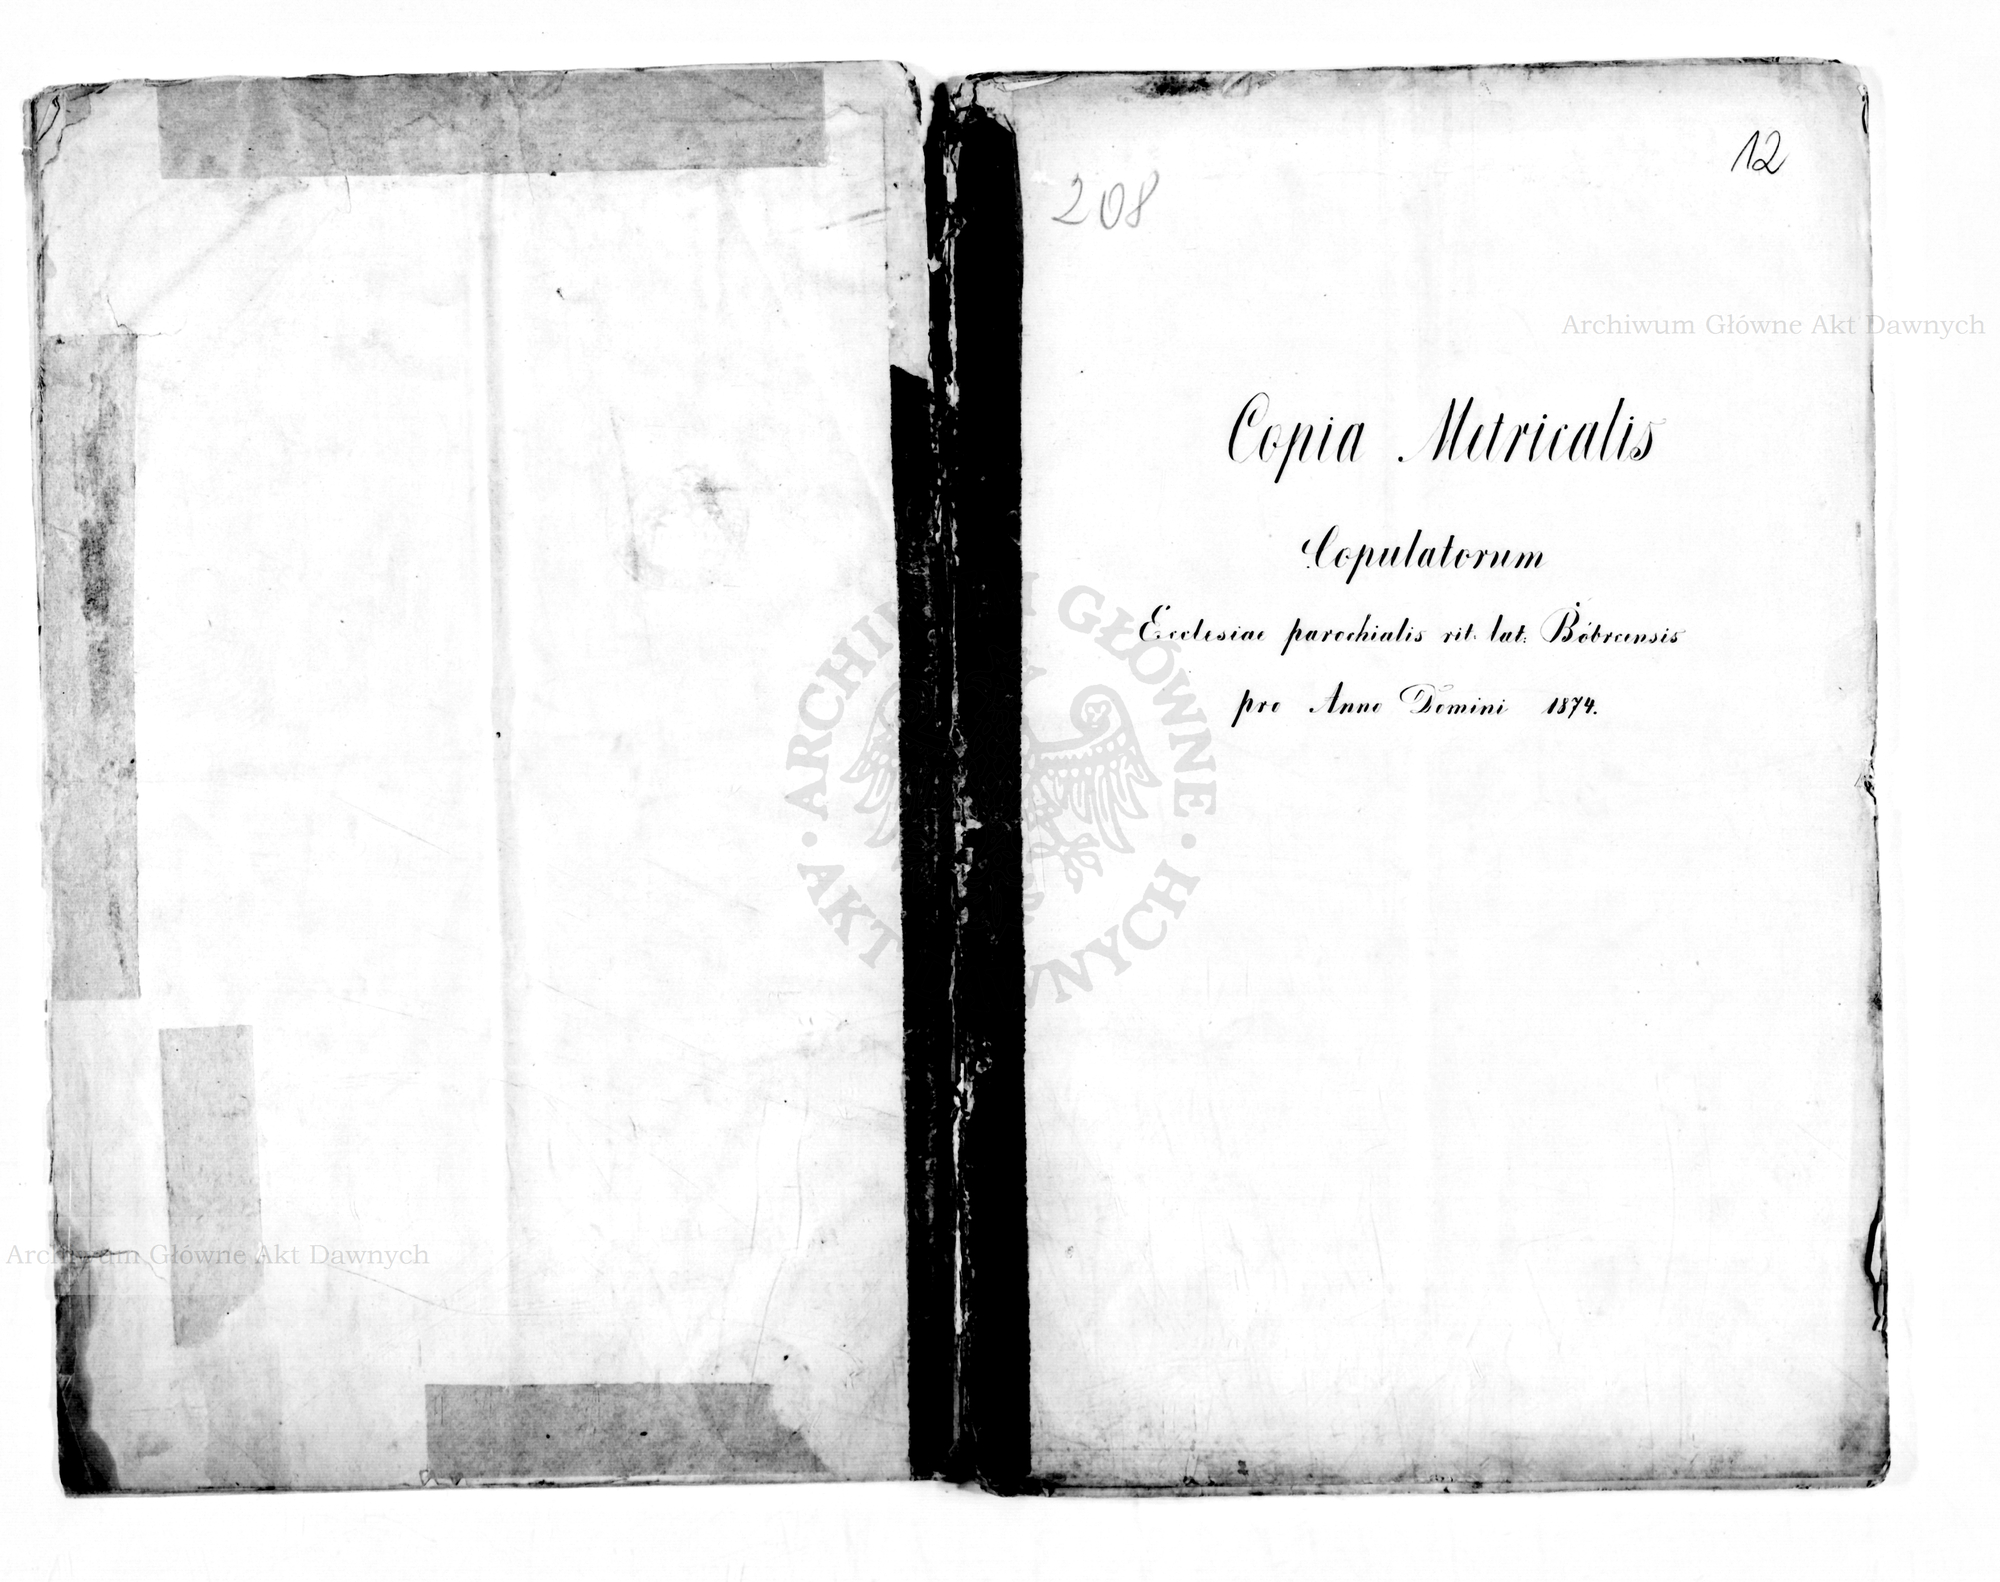 12
208
Archiwum Główne Akt Dawnych
Copia Metricalis
Copulatorum
Ecclesiae parochialis rit. lat: Bóbrcensis
pro Anno Domini 1874.
ARCHIWUM GŁÓWNE
AKT DAWNYCH
Archiwum Główne Akt Dawnych